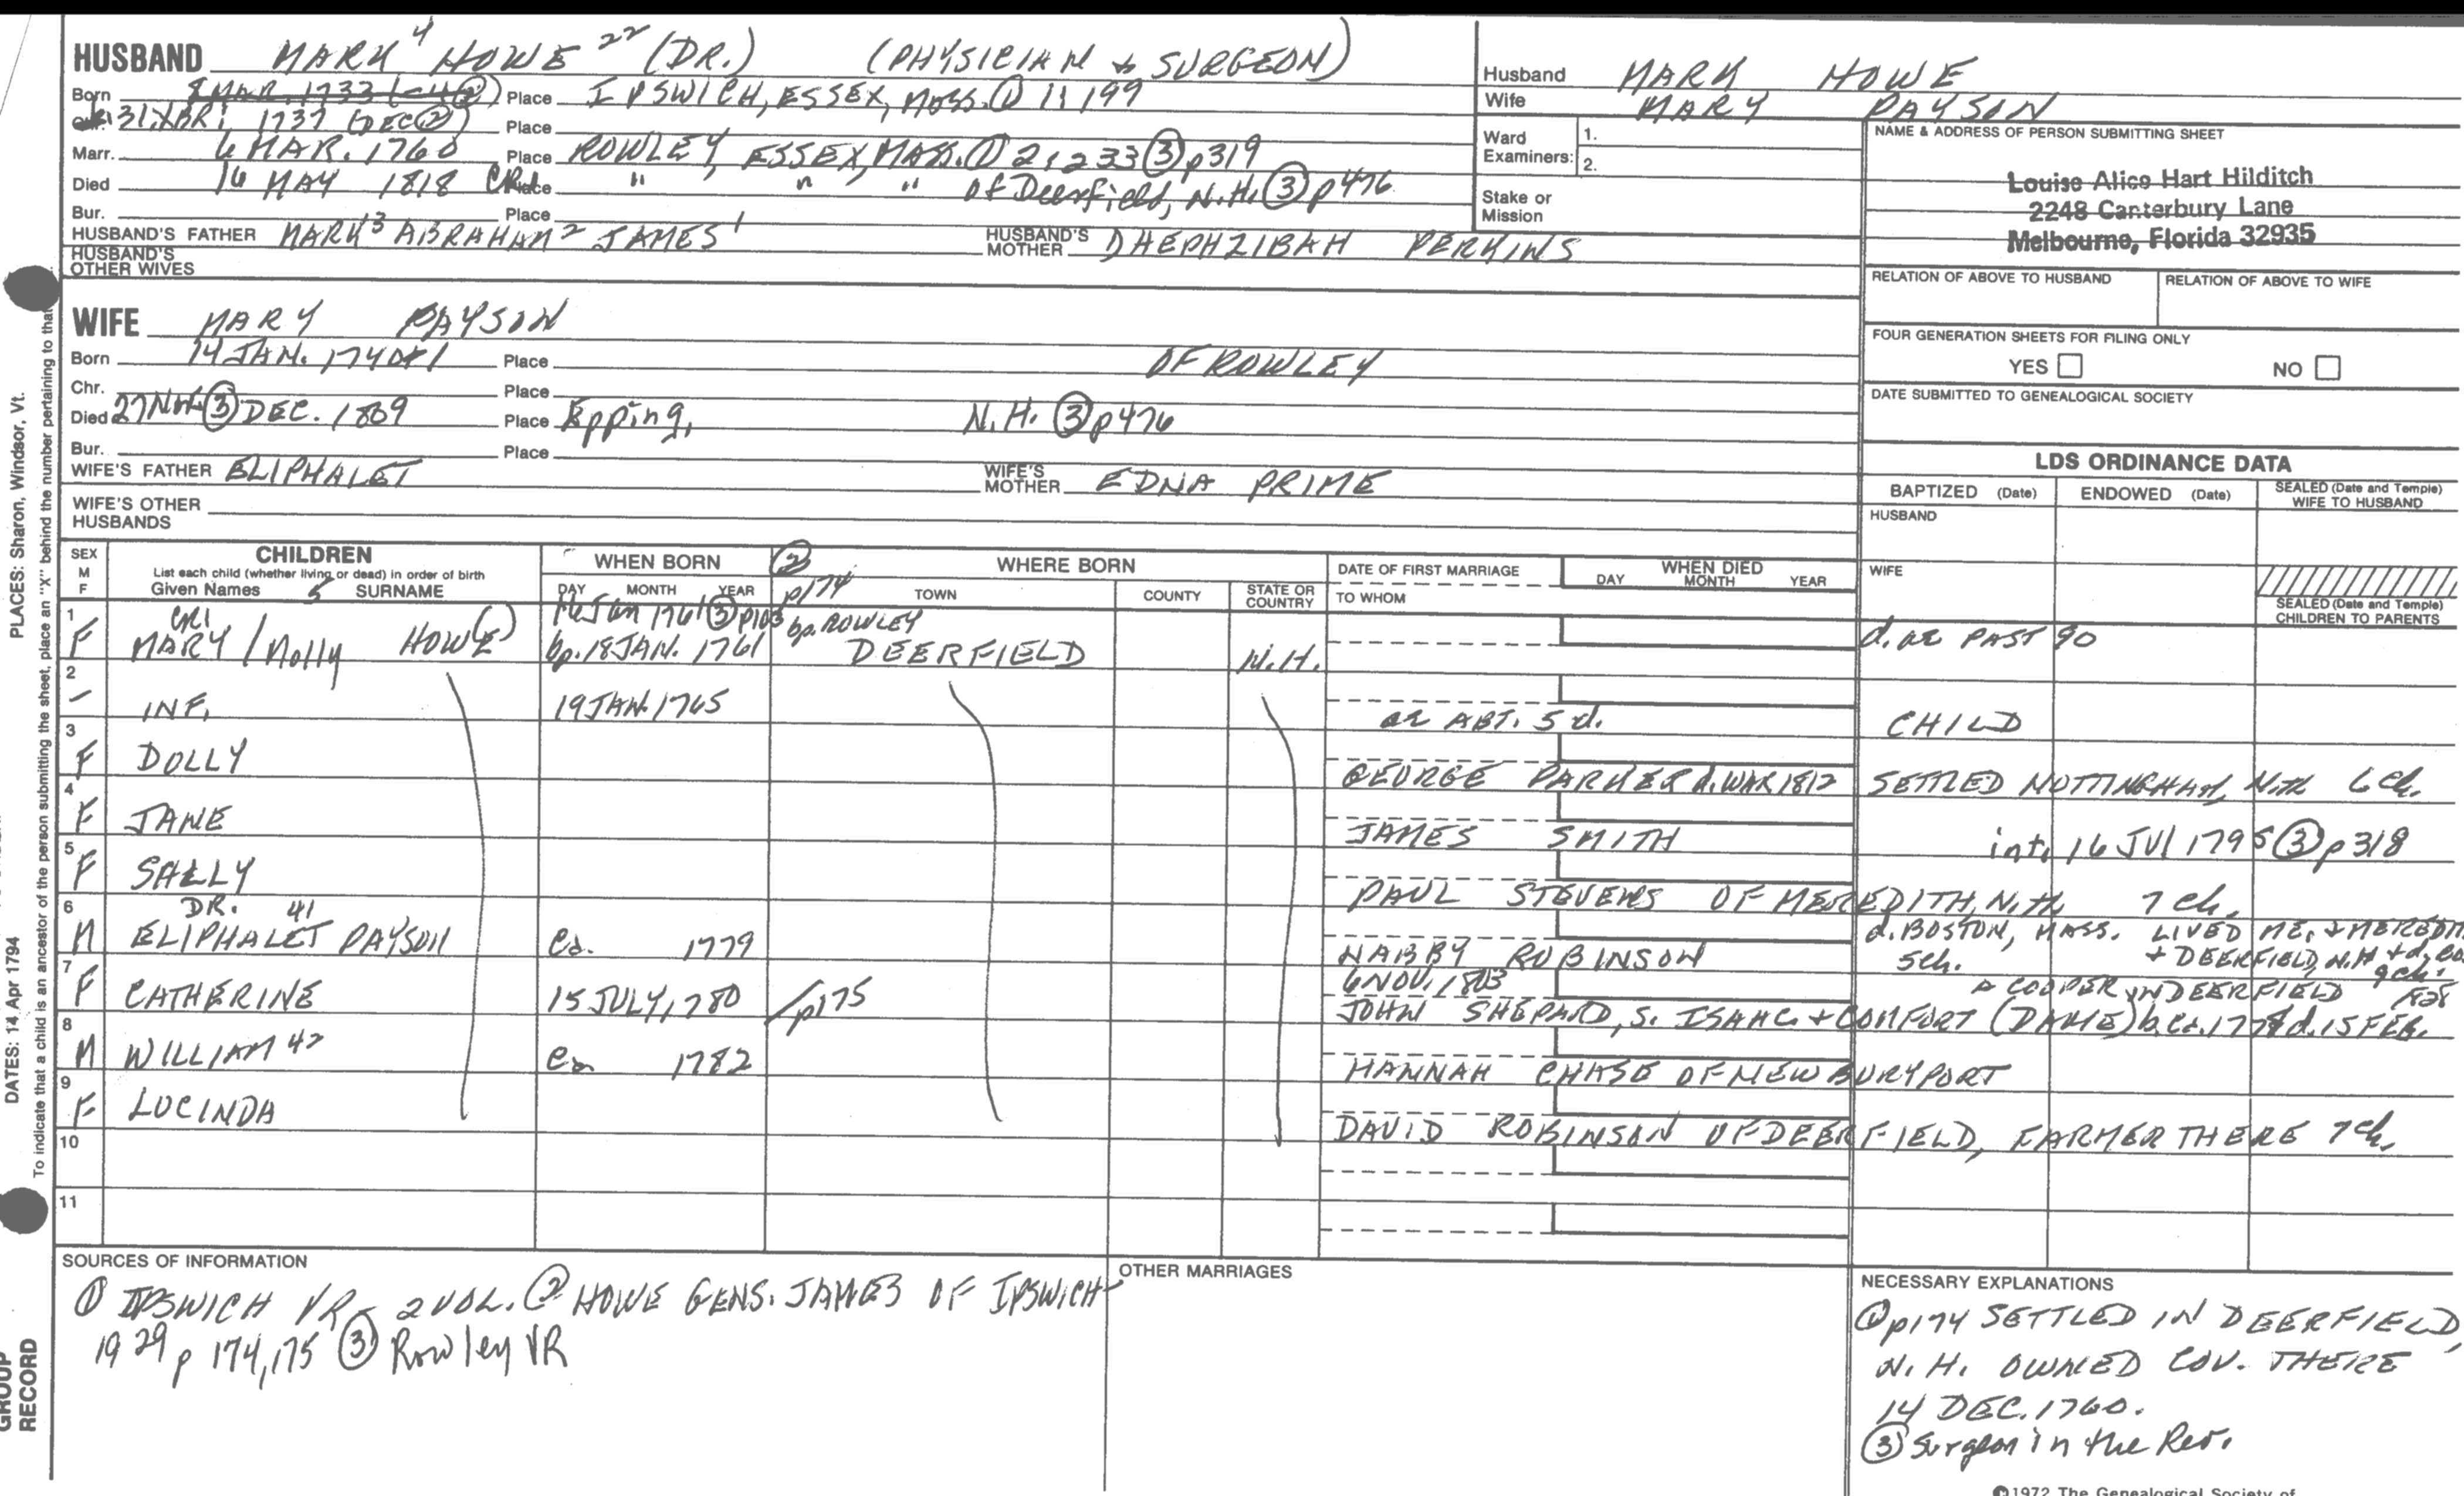 HUSBAND MARK 4 HOWE 22 (DR.) (PHYSICIAN & SURGEON)
Born 8 MAR. 1733 Place IPSWICH, ESSEX, MASS. ① 1:199
Chr. 31, XBR; 1737 (DEC ②) Place
Marr. 6 MAR. 1760 Place ROWLEY, ESSEX, MASS. ① 2:233 ③ p319
Died 16 MAY 1818 CR1 Place " " " of Deerfield, N.H. ③ p476
Bur. Place
HUSBAND'S FATHER MARK 3 ABRAHAM 2 JAMES 1 HUSBAND'S MOTHER DHEPHZIBAH PERKINS
HUSBAND'S OTHER WIVES
Husband MARK HOWE
Wife MARY PAYSON
Ward Examiners: 1.
2.
Stake or Mission
NAME & ADDRESS OF PERSON SUBMITTING SHEET
Louise Alice Hart Hilditch
2248 Canterbury Lane
Melbourne, Florida 32935
RELATION OF ABOVE TO HUSBAND RELATION OF ABOVE TO WIFE
FOUR GENERATION SHEETS FOR FILING ONLY
YES NO
DATE SUBMITTED TO GENEALOGICAL SOCIETY
WIFE MARY PAYSON
Born 14 JAN. 1740/1 Place OF ROWLEY
Chr. Place
Died 27 Nov ③ DEC. 1809 Place Epping, N.H. ③ p476
Bur. Place
WIFE'S FATHER ELIPHALET WIFE'S MOTHER EDNA PRIME
WIFE'S OTHER HUSBANDS
LDS ORDINANCE DATA
BAPTIZED (Date) ENDOWED (Date) SEALED (Date and Temple) WIFE TO HUSBAND
HUSBAND
WIFE
SEALED (Date and Temple) CHILDREN TO PARENTS
SEX M F CHILDREN WHEN BORN ② p174 WHERE BORN DATE OF FIRST MARRIAGE WHEN DIED
List each child (whether living or dead) in order of birth
Given Names 5 SURNAME DAY MONTH YEAR TOWN COUNTY STATE OR COUNTRY TO WHOM DAY MONTH YEAR
CR1 16 Jan 1761 ③ p103 bp. ROWLEY
1 F MARY / Molly HOW(E) bp. 18 JAN. 1761 DEERFIELD N.H. d. ae PAST 90
2 - INF. 19 JAN. 1765 ae ABT. 5 d. CHILD
3 F DOLLY GEORGE PARKER d. WAR 1812 SETTLED NOTTINGHAM, N.H. 6 ch.
4 F JANE JAMES SMITH int. 16 Jul 1795 ③ p318
5 F SALLY PAUL STEVENS OF MEREDITH, N.H. 7 ch.
6 M DR. 41 ELIPHALET PAYSON Ca. 1779 NABBY ROBINSON d. BOSTON, MASS. LIVED ME. & MEREDITH
5 ch. + DEERFIELD, N.H
7 F CATHERINE 15 JULY, 1780 p175 6 NOV. 1803 A COOPER IN DEERFIELD 9 ch.
JOHN SHEPARD, S. ISAAC & COMFORT (DAME) b. Ca. 1778 d. 15 FEB.
8 M WILLIAM 42 Ca 1782 HANNAH CHASE OF NEWBURYPORT
9 F LUCINDA DAVID ROBINSON OF DEERFIELD, FARMER THERE 7 ch.
10
11
SOURCES OF INFORMATION
① IPSWICH VR, 2 VOL. ② HOWE GENS. JAMES OF IPSWICH
1929 p 174, 175 ③ Rowley VR
OTHER MARRIAGES
NECESSARY EXPLANATIONS
① p174 SETTLED IN DEERFIELD,
N. H. OWNED COV. THERE
14 DEC. 1760.
③ Surgeon in the Rev.
©1972 The Genealogical Society of
PLACES: Sharon, Windsor, Vt.
DATES: 14 Apr 1794
To indicate that a child is an ancestor of the person submitting the sheet, place an "X" behind the number pertaining to that
GROUP RECORD